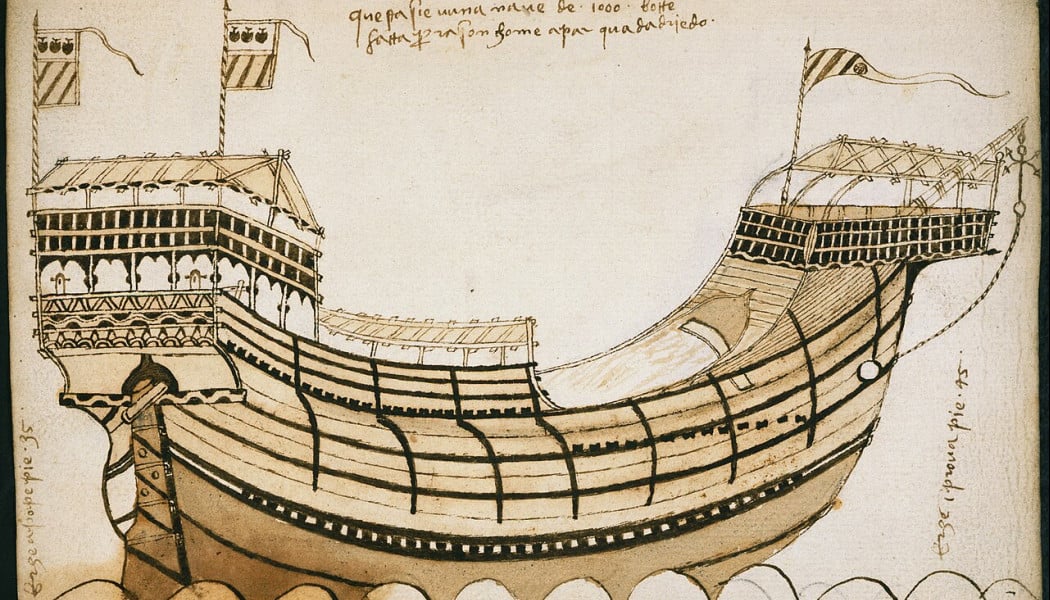 questa sie vuna naue de · 1000 · botte
fatta ꝑ rason chome apar qua dadriedo ·
erze ī popa pe pie · 35
Erze ī prova pie · 45 ·